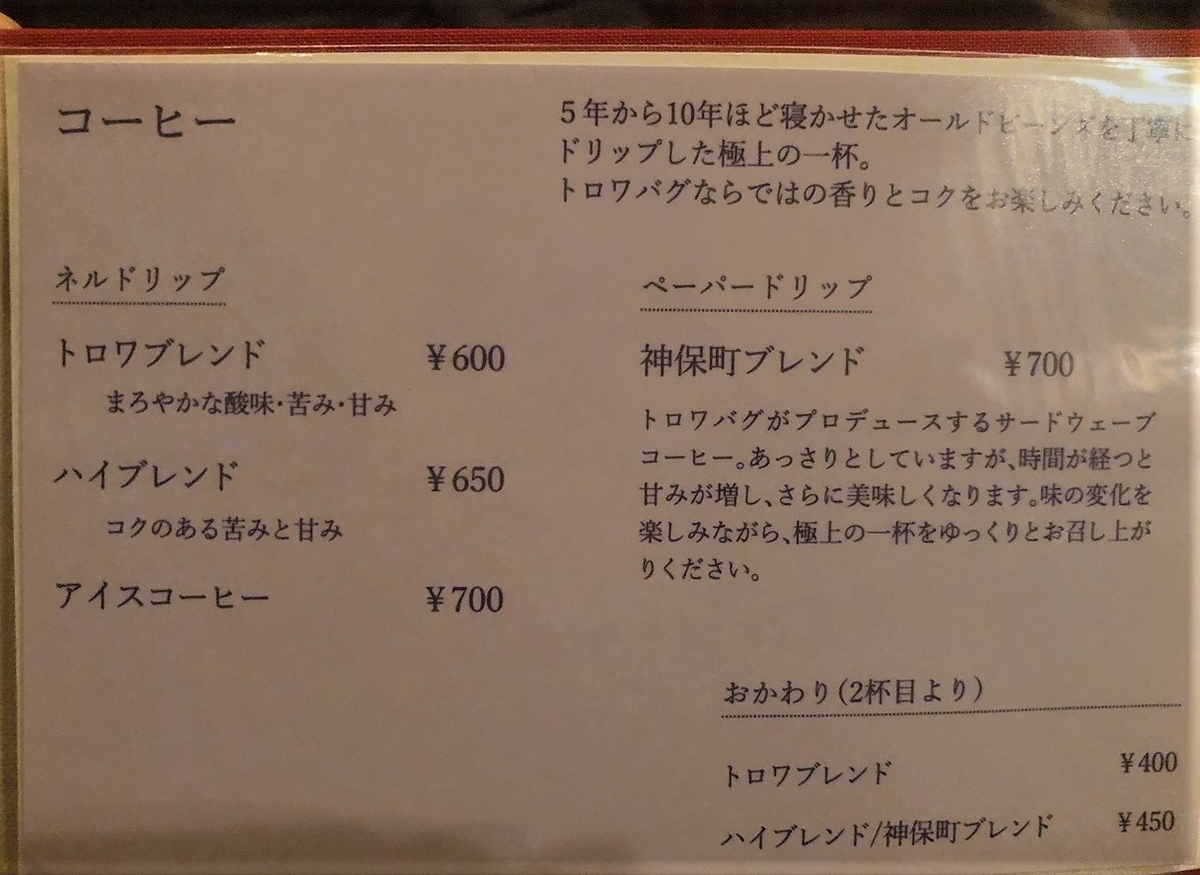 コーヒー
5年から10年ほど寝かせたオールドビーンズを丁寧に
ドリップした極上の一杯。
トロワバグならではの香りとコクをお楽しみください。
ネルドリップ
トロワブレンド ¥600
まろやかな酸味・苦み・甘み
ハイブレンド ¥650
コクのある苦みと甘み
アイスコーヒー ¥700
ペーパードリップ
神保町ブレンド ¥700
トロワバグがプロデュースするサードウェーブ
コーヒー。あっさりとしていますが、時間が経つと
甘みが増し、さらに美味しくなります。味の変化を
楽しみながら、極上の一杯をゆっくりとお召し上が
りください。
おかわり(2杯目より)
トロワブレンド ¥400
ハイブレンド/神保町ブレンド ¥450